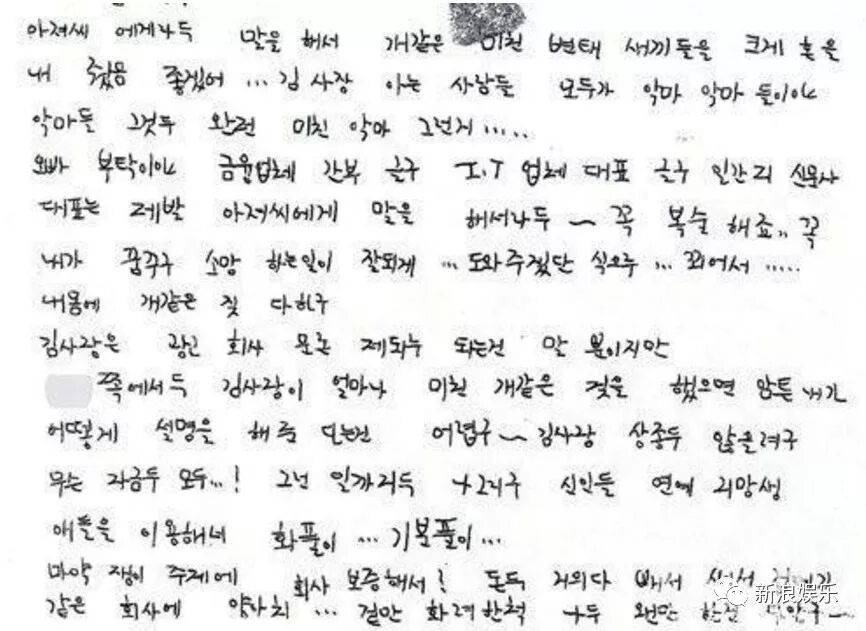 아저씨 에게나두 말을 해서 개같은 미친 변태 새끼들을 크게 혼을
내 줬음 좋겠어 ... 김사장 아는 사람들 모두가 악마 악마 들이야
악마들 그것두 완전 미친 악마 그런지.....
오빠 부탁이야 금융업체 간부 글구 I.T 업체 대표 글구 일간지 신문사
대표는 제발 아저씨에게 말을 해서나두 ~ 꼭 복수 해죠.. 꼭
내가 꿈꾸구 소망 하는일이 잘되게 ... 도와주겠단 식으루 ... 꾀어서 .....
내몸에 개같은 짓 다하구
김사장은 광고 회사 모른 제되는 되는건 말 뿐이지만
쪽에서두 김사장이 얼마나 미친 개같은 짓을 했으면 암튼 내가
어떻게 설명을 해주 어렵구 ~ 김사장
무슨 자금두 모두...! 그런 일까지두 그리구 신인들 연예 지망생
애들을 이용해서 화풀이 ... 기분풀이 ...
마약 쟁이 주제에 회사 보증해서! 돈두 거의다 빼서
같은 회사에 양아치 ... 겉만 화려한척 나두 왠만
新浪娱乐